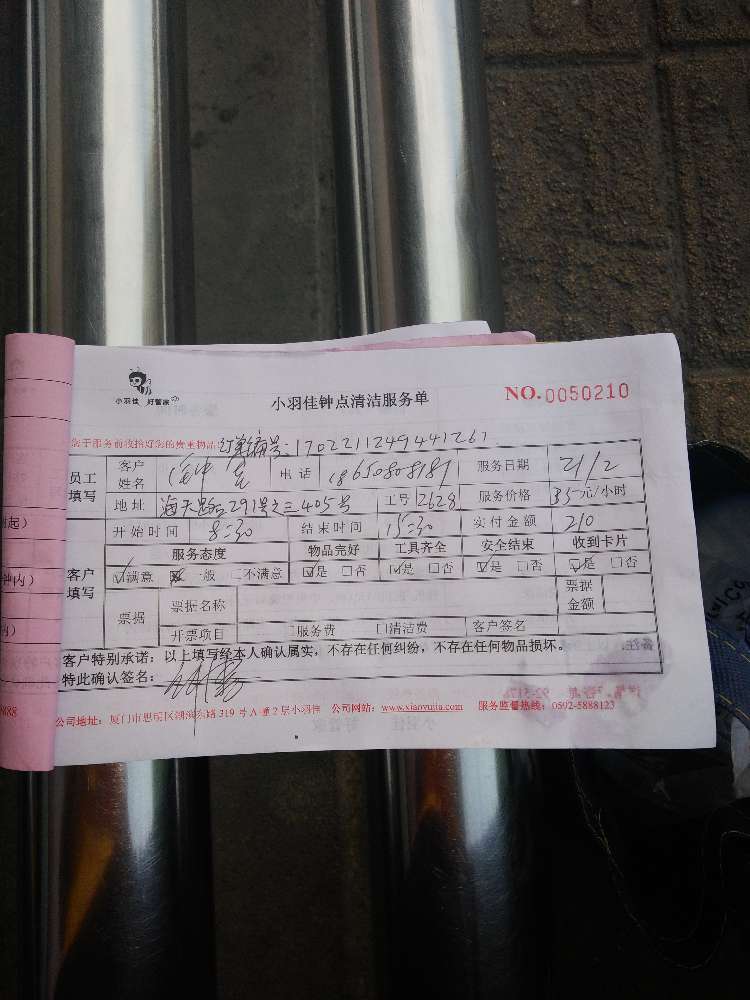 小羽佳 好管家
小羽佳钟点清洁服务单
NO.0050210
您于服务前收拾好您的贵重物品 订单编号:1702211249441267
员工填写 客户姓名 电话 18650808189 服务日期 21/2
地址 海天路291号之三405号 工号 2628 服务价格 35元/小时
开始时间 8:30 结束时间 15:30 实付金额 210
客户填写 服务态度 物品完好 工具齐全 安全结束 收到卡片
☑满意 一般 □不满意 ☑是 □否 ☑是 □否 ☑是 □否 ☑是 □否
票据 票据名称 票据金额
开票项目 □服务费 □清洁费 客户签名
客户特别承诺:以上填写经本人确认属实,不存在任何纠纷,不存在任何物品损坏。
特此确认签名:
公司地址:厦门市思明区湖滨东路319号A幢2层小羽佳 公司网站:www.xiaoyujia.com 服务监督热线:0592-5888123